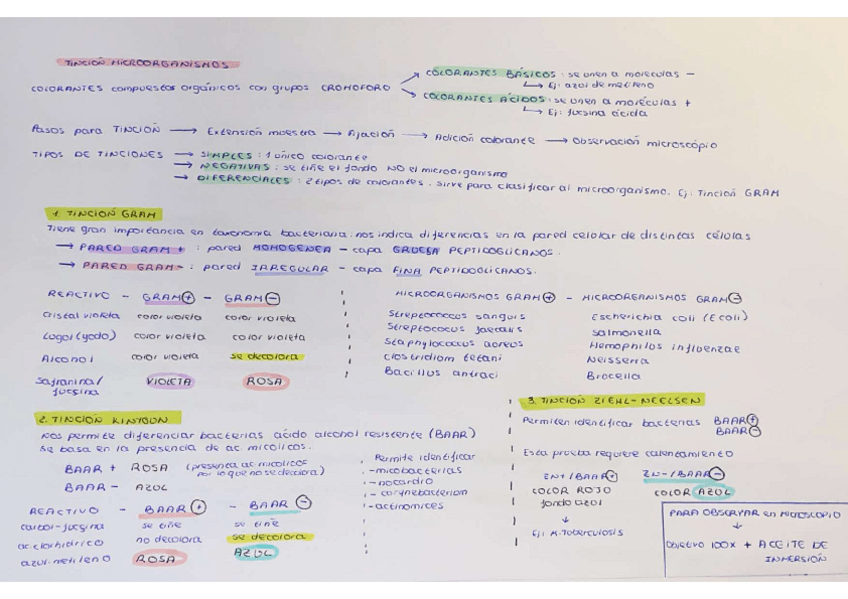 TINCIÓN MICROORGANISMOS
COLORANTES compuestos orgánicos con grupos CROMOFORO
COLORANTES BÁSICOS: se unen a moléculas −
↳ Ej: azul de metileno
COLORANTES ÁCIDOS: se unen a moléculas +
↳ Ej: fucsina ácida
Pasos para TINCIÓN → Extensión muestra → Fijación → Adición colorante → Observación microscopio
TIPOS DE TINCIONES → SIMPLES: 1 único colorante
→ NEGATIVAS: se tiñe el fondo NO el microorganismo
→ DIFERENCIALES: 2 tipos de colorantes. Sirve para clasificar al microorganismo. Ej: Tinción GRAM
1. TINCIÓN GRAM
Tiene gran importancia en taxonomía bacteriana: nos indica diferencias en la pared celular de distintas células
→ PARED GRAM + : pared HOMOGENEA − capa GRUESA PEPTIDOGLICANOS.
→ PARED GRAM − : pared IRREGULAR − capa FINA PEPTIDOGLICANOS.
REACTIVO − GRAM + − GRAM −
Cristal violeta color violeta color violeta
Lugol (yodo) color violeta color violeta
Alcohol color violeta se decolora
Safranina/ fucsina VIOLETA ROSA
MICROORGANISMOS GRAM + − MICROORGANISMOS GRAM −
Streptococcus sanguis Escherichia coli (E coli)
Streptococcus faecalis Salmonella
Staphylococcus aureus Hemophilus influenzae
Clostridiom tetani Neisserra
Bacillus antraci Brocella
2. TINCIÓN KINYOUN
Nos permite diferenciar bacterias ácido alcohol resistente (BAAR)
Se basa en la presencia de ac micolicos.
BAAR + ROSA (presenta ac micolicos
por lo que no se decolora)
BAAR − AZUL
REACTIVO − BAAR + − BAAR −
carbol-fucsina se tiñe se tiñe
ac clorhidrico no decolora se decolora
azul metileno ROSA AZUL
Permite identificar
- micobacterias
- nocardia
- corynebacterion
- actinomices
3. TINCIÓN ZIEHL-NEELSEN
Permiten identificar bacterias BAAR +
BAAR −
Esta prueba requiere calentamiento
ZN+/BAAR + ZN-/BAAR −
COLOR ROJO COLOR AZUL
fondo azul
↓
Ej: M. Tuberculosis
PARA OBSERVAR en MICROSCOPIO
↓
Objetivo 100x + ACEITE DE
INMERSIÓN